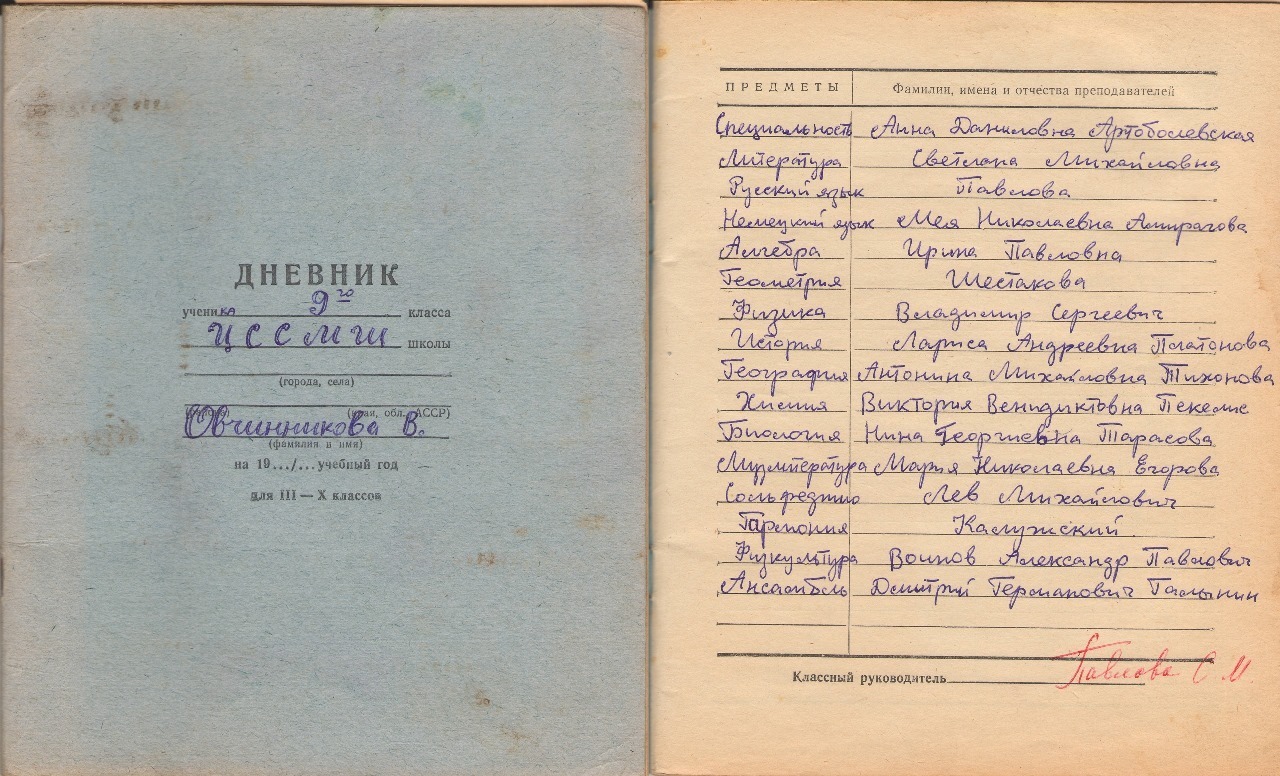 ДНЕВНИК
ученика 9го класса
ЦССМШ школы
(города, села)
(край, обл. АССР)
Овчинникова В.
(фамилия и имя)
на 19.../... учебный год
для III — X классов
ПРЕДМЕТЫ Фамилии, имена и отчества преподавателей
Специальность Анна Даниловна Артоболевская
Литература Светлана Михайловна
Русский язык Павлова
Немецкий язык Мея Николаевна Амирагова
Алгебра Ирина Павловна
Геометрия Шестакова
Физика Владимир Сергеевич
История Лариса Андреевна Платонова
География Антонина Михайловна Тихонова
Химия Виктория Венидиктовна Пекелис
Биология Нина Георгиевна Тарасова
Музлитература Мария Николаевна Егорова
Сольфеджио Лев Михайлович
Гармония Калужский
Физкультура Воинов Александр Павлович
Ансамбль Дмитрий Германович Галынин
Классный руководитель Павлова С М